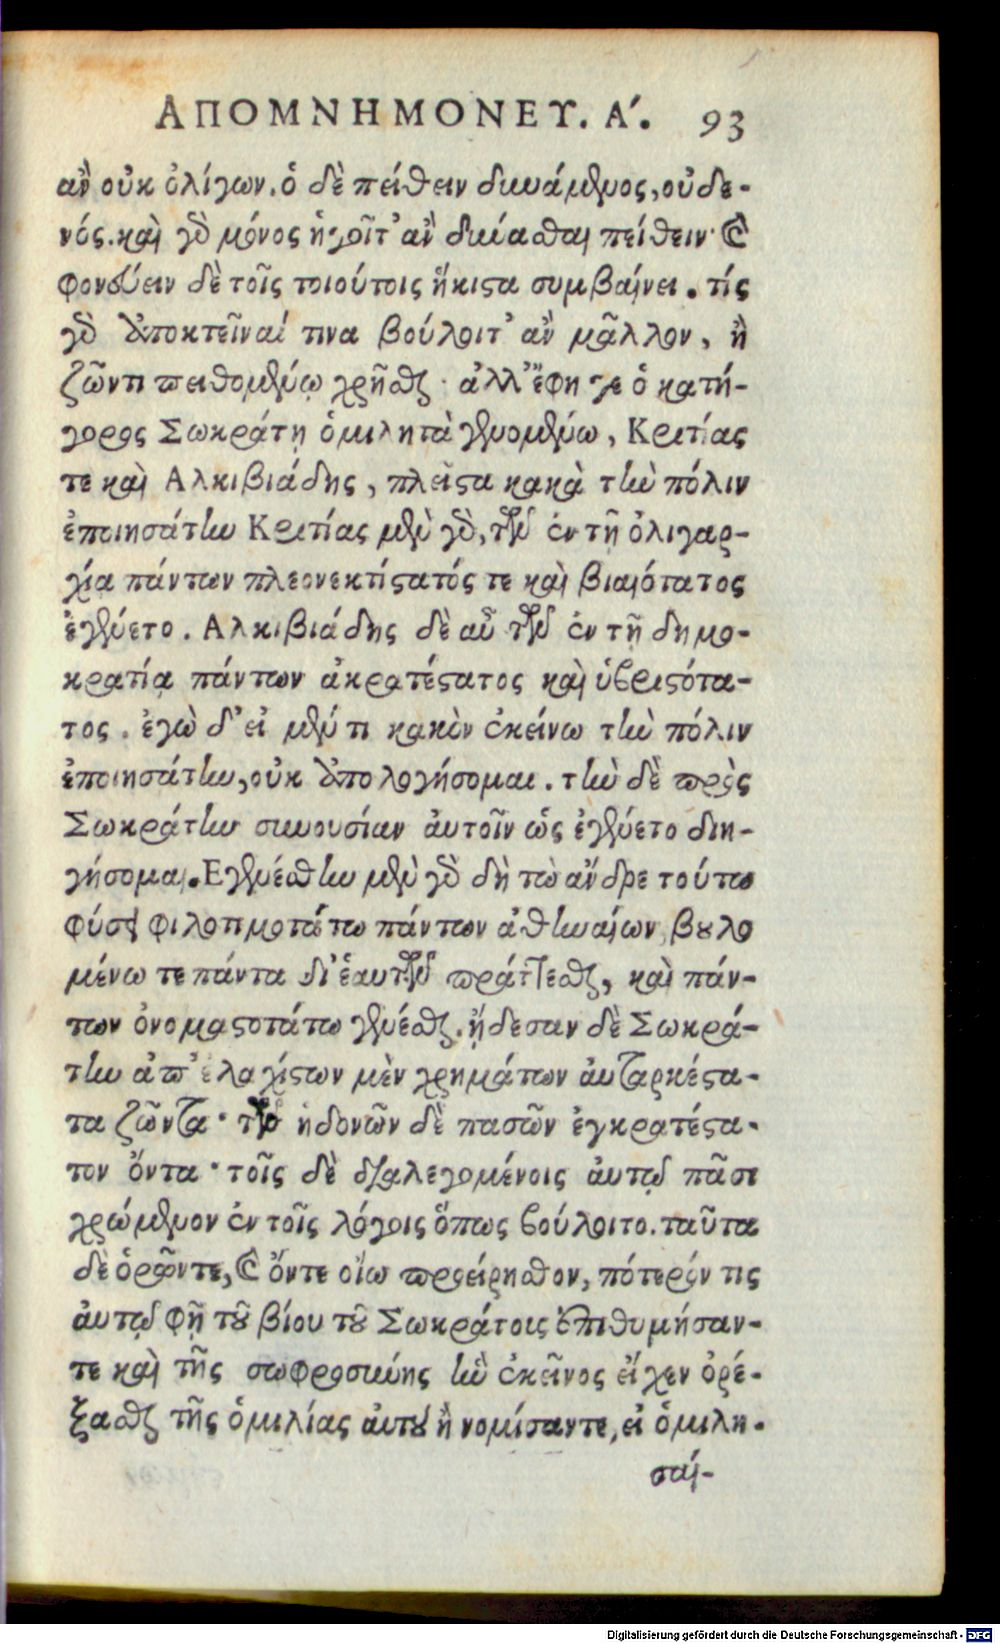 ΑΠΟΜΝΗΜΟΝΕΥ. Α΄. 93
ἂν οὐκ ὀλίγων. ὁ δὲ πείθειν δυνάμενος, οὐδε-
νός. καὶ γὰρ μόνος ἡγοῖτ' ἂν δύνασθαι πείθειν· καὶ
φονεύειν δὲ τοῖς τοιούτοις ἥκιστα συμβαίνει. τίς
γὰρ ἀποκτεῖναί τινα βούλοιτ' ἂν μᾶλλον, ἢ
ζῶντι πειθομένῳ χρῆσθαι· ἀλλ' ἔφη γε ὁ κατή-
γορος Σωκράτῃ ὁμιλητὰ γενομένω, Κριτίας
τε καὶ Αλκιβιάδης, πλεῖστα κακὰ τὴν πόλιν
ἐποιησάτην Κριτίας μὲν γὰρ, τῶν ἐν τῇ ὀλιγαρ-
χίᾳ πάντων πλεονεκτίστατός τε καὶ βιαιότατος
ἐγένετο. Αλκιβιάδης δὲ αὖ τῶν ἐν τῇ δημο-
κρατίᾳ πάντων ἀκρατέστατος καὶ ὑβριστότα-
τος. ἐγὼ δ' εἰ μέν τι κακὸν ἐκείνω τὴν πόλιν
ἐποιησάτην, οὐκ ἀπολογήσομαι. τὴν δὲ πρὸς
Σωκράτην συνουσίαν ἀυτοῖν ὡς ἐγένετο διη-
γήσομαι. Εγενέσθην μὲν γὰρ δὴ τὼ ἄνδρε τούτω
φύσει φιλοτιμοτάτω πάντων ἀθηναίων, βουλο
μένω τε πάντα δι' ἑαυτῶν πράττεσθαι, καὶ πάν-
των ὀνομαστοτάτω γενέσθαι. ᾔδεσαν δὲ Σωκρά-
την ἀπ' ἐλαχίστων μὲν χρημάτων ἀυταρκέστα-
τα ζῶντα· τῶν ἡδονῶν δὲ πασῶν ἐγκρατέστα-
τον ὄντα· τοῖς δὲ διαλεγομένοις ἀυτῷ πᾶσι
χρώμενον ἐν τοῖς λόγοις ὅπως βούλοιτο. ταῦτα
δὲ ὁρῶντε, καὶ ὄντε οἵω προείρησθον, πότερόν τις
ἀυτῷ φῇ τοῦ βίου τοῦ Σωκράτοις ἐπιθυμήσαν-
τε καὶ τῆς σωφροσύνης ἣν ἐκεῖνος εἴχεν ὀρέ-
ξασθαι τῆς ὁμιλίας ἀυτοῦ ἢ νομίσαντε, εἰ ὁμιλη-
σαί-
Digitalisierung gefördert durch die Deutsche Forschungsgemeinschaft - DFG